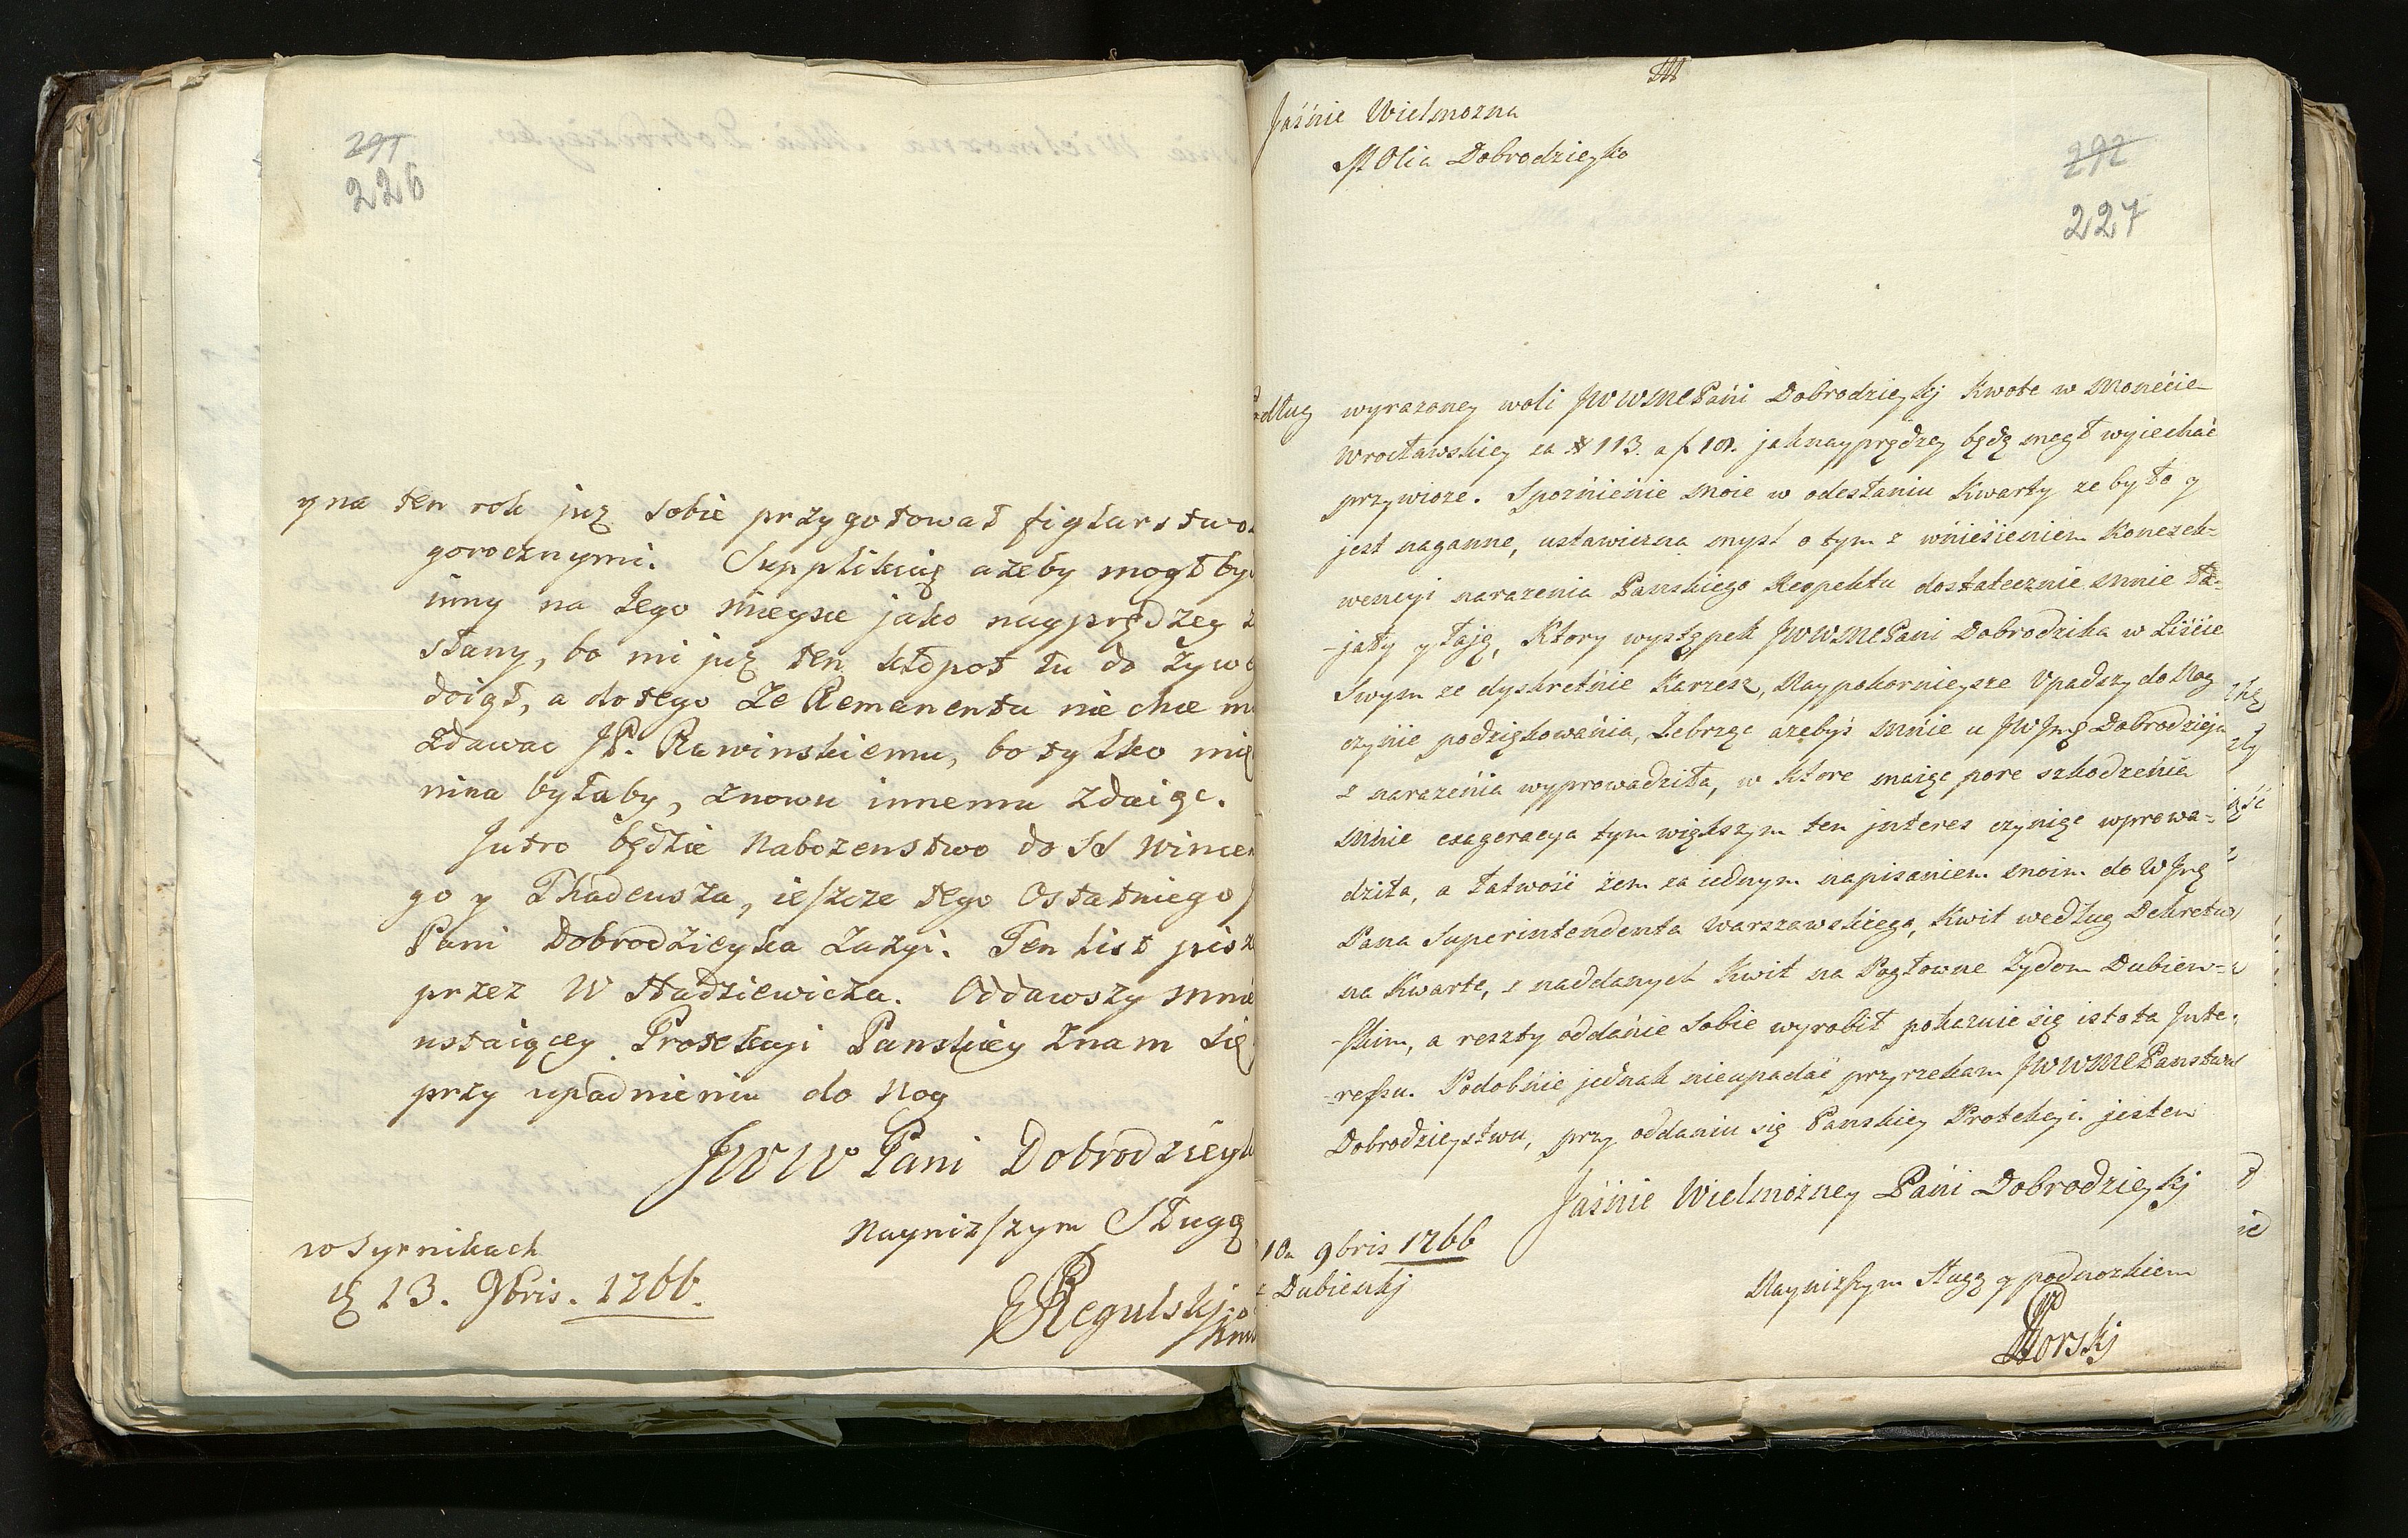 291
226
y na ten rok juz sobie przygotował figlarstwo
gorocznymi. Supplikuię azeby mogł by
inny na Jego mieysce jako nayprędzey
słany, bo mi juz ten kłopot tu do żyw
doigł, a do tego że Remanentu nie chce
zdawac JP. Rawinskiemu, bo tylko mię
nina byłaby, znowu innemu zdaiąc.
Jutro będzie Nabożenstwo do SS Wincen
go y Thadeusza, ieszcze tego Ostatniego
Pani Dobrodzieyka zażyi. Ten list pisz
przez W Hadziewicza. Oddawszy mnie
ustaiącey Protekcyi Panskiey znam się
przy upadnieniu do Nog
JWW Pani Dobrodziey
Nayniższym Sługą
w Syrnikach
13. 9bris. 1766.
Regulskj
292
227
Jaśnie Wielmozna
Dobrodzieyko
dług wyrazoney woli JWWMEPani Dobrodzieykj Kwote w Monecie
Wrocławskiey za # 113. a f 18. jaknayprędzey będę mogł wyiechać
przywioze. Spoznienie moie w odesłaniu Kwarty ze było y
jest naganne, ustawiczna mysl o tym z wniesieniem Konsek-
wencyi narazenia Panskiego Respektu dostatecznie mnie ła-
-jały y łaję, Ktory występek JWWMEPani Dobrodzika w Liscie
Swym ze dyskretnie Karzesz, Naypokornieysze Upadszy do Nog
czynie podziękowania, Zebrząc azebyś mnie u JWJmę Dobrodzieja
z narazenia wyprowadziła, w Ktore maiąc pore szkodzenia
mnie exageracya tym większym ten jnteres czyniąc wprowa-
dziła, a łatwość żem za iednym napisaniem moim do WJmę
Pana Superintendenta Warszawskiego, Kwit według Dekretu
na Kwarte, z naddanych Kwit na Pogłowne Zydom Dubiew-
-skim, a reszty oddanie Sobie wyrobił pokazuie się istota Jnte-
-ressu. Podobnie jednak nieupadać przyrzekam JWWMEPanstwu
Dobrodzieystwu, przy oddaniu się Panskiey Protekcyi jestem
Jaśnie Wielmożney Pani Dobrodzieykj
10a 9bris 1766
z Dubienkj
Nayniższym Sługą y podnozkiem
Gorskj